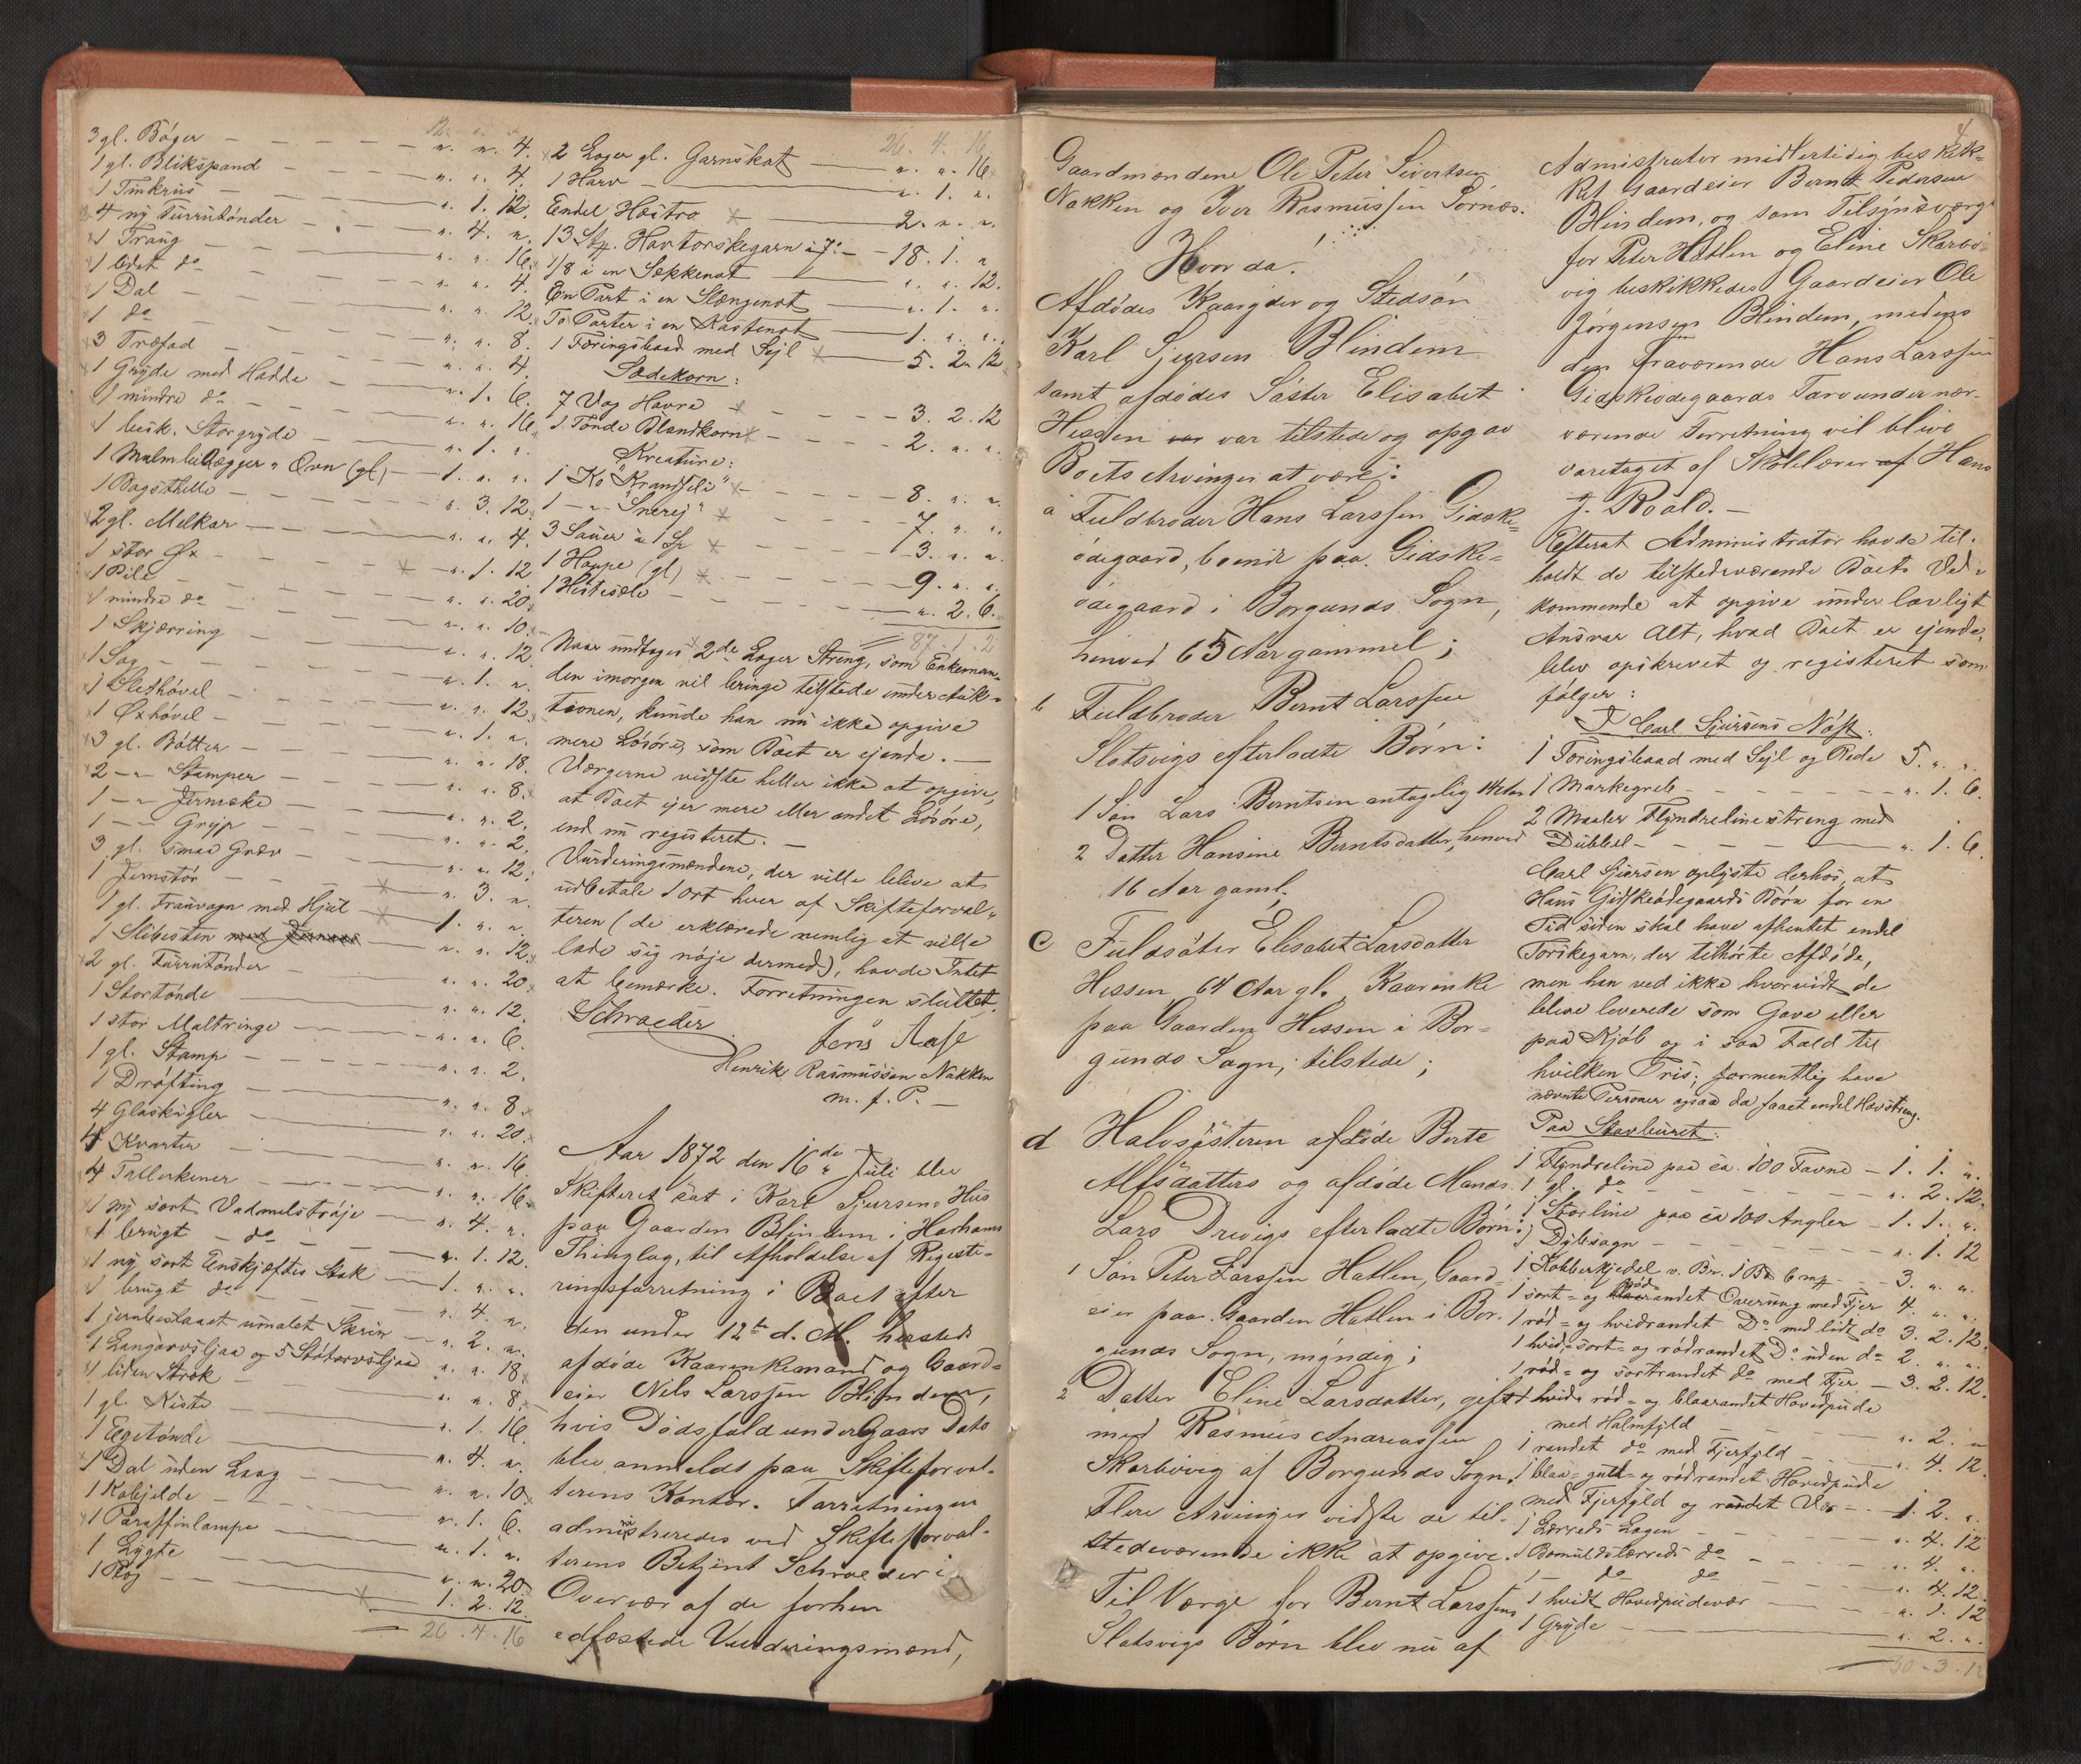 3 gl. Bøger — — — — " " 4.
1 gl. Blikspand — — — " " 4.
1 Tinkrus — — — — " 1. 12.
4 ny Turrutønder — — — " 4. "
1 Traug — — — — " " 16.
1 lidet do — — — — " " 4.
1 Dal — — — — " " 12.
1 do — — — — " " 8.
3 Træfad — — — — " " 4
1 Gryde med Hadde — — " 1. 6.
1 mindre do — — — " " 16.
1 besk. Storgryde — — " 1. "
1 Malm Ovn (gl) — 1. " "
1 Bagsthelle — — — " 3. 12.
2 gl. Melkar — — — " " 4.
1 stor Øx — — — " 1. 12
1 Pile — — — — " " 20.
1 mindre do — — — " " 10.
1 Skjærring — — — " " 12.
1 Sag — — — — " 1. "
1 Slethøvel — — — " " 12.
1 Øxhøvel — — — " 1. "
3 gl. Bøtter — — — " " 18.
2 — " — Stamper — — " " 8.
1 — " — — — " " 2.
1 — " — Greip — — " " 2.
3 gl. smaa Græv — — " " 12.
1 Jernstør — — — " 3. "
1 gl. Tranvogn med Hjul — 1. " "
1 Slibesten — — " " 12.
2 gl. Turrutønder — — " " 20.
1 Stortønde — — " " 12.
1 stor Maltringe — — " " 6.
1 gl. Stamp — — — " " 2.
1 Drøfting — — — " " 8.
4 Glaskugler — — " " 20.
4 Kvarter — — — " " 16.
4 Tallerkener — — " " 16.
1 ny sort Vadmelstrøje — " 4. "
1 brugt — do — — " 1. 12.
1 ny sort Enskjæftes Stak — 1. " "
1 brugt do — — " 4. "
1 jernbeslaaet umalet Skrin — " 2. "
1 Langorvsljaa og 5 Stutorvsljaa " " 18.
1 liden Strok — — " " 8.
1 gl. Kiste — — " 1. 16.
1 Egetønde — — " 4. "
1 Dal uden Laag — — " " 10.
1 Kabjelde — — " 1. 6.
1 Paraffinlampe — — " 1. "
1 Lygte — — " " 20.
1 Plog — — 1. 2. 12.
26. 4. 16
26. 4. 16
2 Lager gl. Garnskat — " " 16.
1 Harv — — " 1. "
Endel Høstro — 2. " "
13 Stk. Havtorskegarn à 7 — 18. 1. "
1/8 i en Sækkenot — " " 12.
En Part i en Stængenot — " 1. "
To Parter i en Kastenot — 1. " "
1 Færingsbaad med Sejl — 5. 2. 12
Sædekorn:
7 Vog Havre — — 3. 2. 12
1 Tønde Blandkorn — — 2. " "
Kreature:
1 Ko "Krandseli" — — 8. " "
1 — " — "Snerej" — — 7. " "
3 Sauer à 1 Sp — — 3. " "
1 Hoppe (gl) — — 9. " "
1 Hestesæle — — " 2. 6.
87. 1. 2
Naar undtages 2de Lager Streng, som Enkeman-
den imorgen vil bringe tilstede under Auk-
tionen, kunde han nu ikke opgive
mere Løsøre, som Boet er ejende. —
Værgerne vidste heller ikke at opgive,
at Boet ejer mere eller andet Løsøre,
end nu registeret. —
Vurderingsmændene, der ville blive at
udbetale 1 ort hver af Skifteforval-
teren (de erklærede nemlig at ville
lade sig nøje dermed), havde Intet
at bemærke. Forretningen sluttet.
Schrøeder
Jens Aase
Henrik Rasmussen Nakken
m. f. P. —
Aar 1872 den 16de Juli blev
Skifteret sat i Karl Sjursens Hus
paa Gaarden Blindem i Harhams
Thinglag, til Afholdelse af Registe-
ringsforretning i Boet efter
den under 12te d. M. hersteds
afdøde Kaarenkemand og Gaard-
eier Nils Larssen Blindem,
hvis Dødsfald under Gaars Dato
blev anmeldt paa Skifteforval-
terens Kontor. Forretningen
administreredes ved Skifteforval-
terens Betjent Schrøeder i
Overvær af de forhen
edfæstede Vurderingsmænd,
4
Gaardmændene Ole Peter Sivertsen
Nakken og Iver Rasmussen Sørnæs.
Hvorda:
Afdødes Kaargder og Stedsøn
Karl Sjursen Blindem
samt afdødes Søster Elisabet
Hessen var var tilstede og opgav
Boets Arvinger at være:
a Fuldbroder Hans Larssen Gidske-
ødegaard, boende paa Gidske-
ødegaard i Borgunds Sogn,
henved 65 Aar gammel;
b Fuldbroder Bernt Larssen
Slotsvigs efterladte Børn:
1 Søn Lars Berntsen antagelig 14 Aar
2 Datter Hansine Berntsdatter, henved
16 Aar gaml.
c Fuldsøster Elisabet Larsdatter
Hessen, 64 Aar gl. Kaarenke
paa Gaarden Hessen i Bor-
gunds Sogn, tilstede;
d Halvsøsteren afdøde Berte
Alfsdatters og afdøde Mands
Lars Drevigs efterladte Børn:
1 Søn Peter Larssen Hatlen, Gaard-
eier paa Gaarden Hatlen i Bor-
gunds Sogn, myndig;
2 Datter Eline Larsdatter, gift
med Rasmus Andreassen
Skarbøvig af Borgunds Sogn.
Flere Arvinger vidste de til-
stedeværende ikke at opgive.
Til Værge for Bernt Larssens
Slotsvigs Børn blev nu af
Administrator midlertidig beskik-
ket Gaardeier Bernt Pedersen
Blindem, og som Tilsynsværge
for Peter Hatlen og Eline Skarbø-
vig beskikkedes Gaardeier Ole
Jørgensen Blindem, medens
den fraværende Hans Larssen
Gidskeødegaards Tarv under nær-
værende Forretning vil blive
varetaget af Skolelærer af Hans
J. Roald. —
Efterat Administrator havde til-
holdt de tilstedeværende Boets Ved-
kommende at opgive under lovligt
Ansvar Alt, hvad Boet er ejende,
blev opskrevet og registeret som
følger:
I Carl Sjursens Nøst:
1 Færingsbaad med Sejl og Rede 5. " "
1 Markegreb — — " 1. 6.
2 Maaler Flyndrelinestreng med
Dubbel — — " 1. 6.
Carl Sjursen oplyste derhos, at
Hans Gidskeødegaards Børn for en
Tid siden skal have afhentet endel
Torskegarn, der tilhørte Afdøde,
men han ved ikke hvorvidt de
bleve leverede som Gave eller
paa Kjøb og i saa Fald til
hvilken Pris; formentlig have
nævnte Personer ogsaa da faaet endel Havstreng.
Paa Stavburet:
1 Flyndreline paa ca. 100 Favne — 1. 1. "
1 gl. do — — " 2. 12.
1 Storline paa ca 100 Angler — 1. 1. "
1 Dybsagn — — " 1. 12
1 Kobberkjedel v. Bn. 1 Bd 6 mk — 3. " "
1 sort- og rødrandet Overseng med Fjer 4. " "
1 rød- og hvidrandet Do med lidt do 3. 2. 12.
1 hvid- sort- og rødrandet Do uden do 2. " "
1 rød- og sortrandet do med Fjer — 3. 2. 12.
1 hvid- rød- og blaarandet Hovedpude
med Halmfyld — — " 2. "
1 randet do med Fjerfyld — " 4. 12.
1 blaa- gul- og rødrandet Hovedpude
med Fjerfyld og randet Vær — 1. 2. "
1 Lærreds Lagen — — " 4. 12
1 Bomuldslærreds do — — " 4. "
1 — do — do — " 4. 12.
1 hvidt Hovedpudevær — " 1. 12
1 Gryde — — " 2. "
30. 3. 12